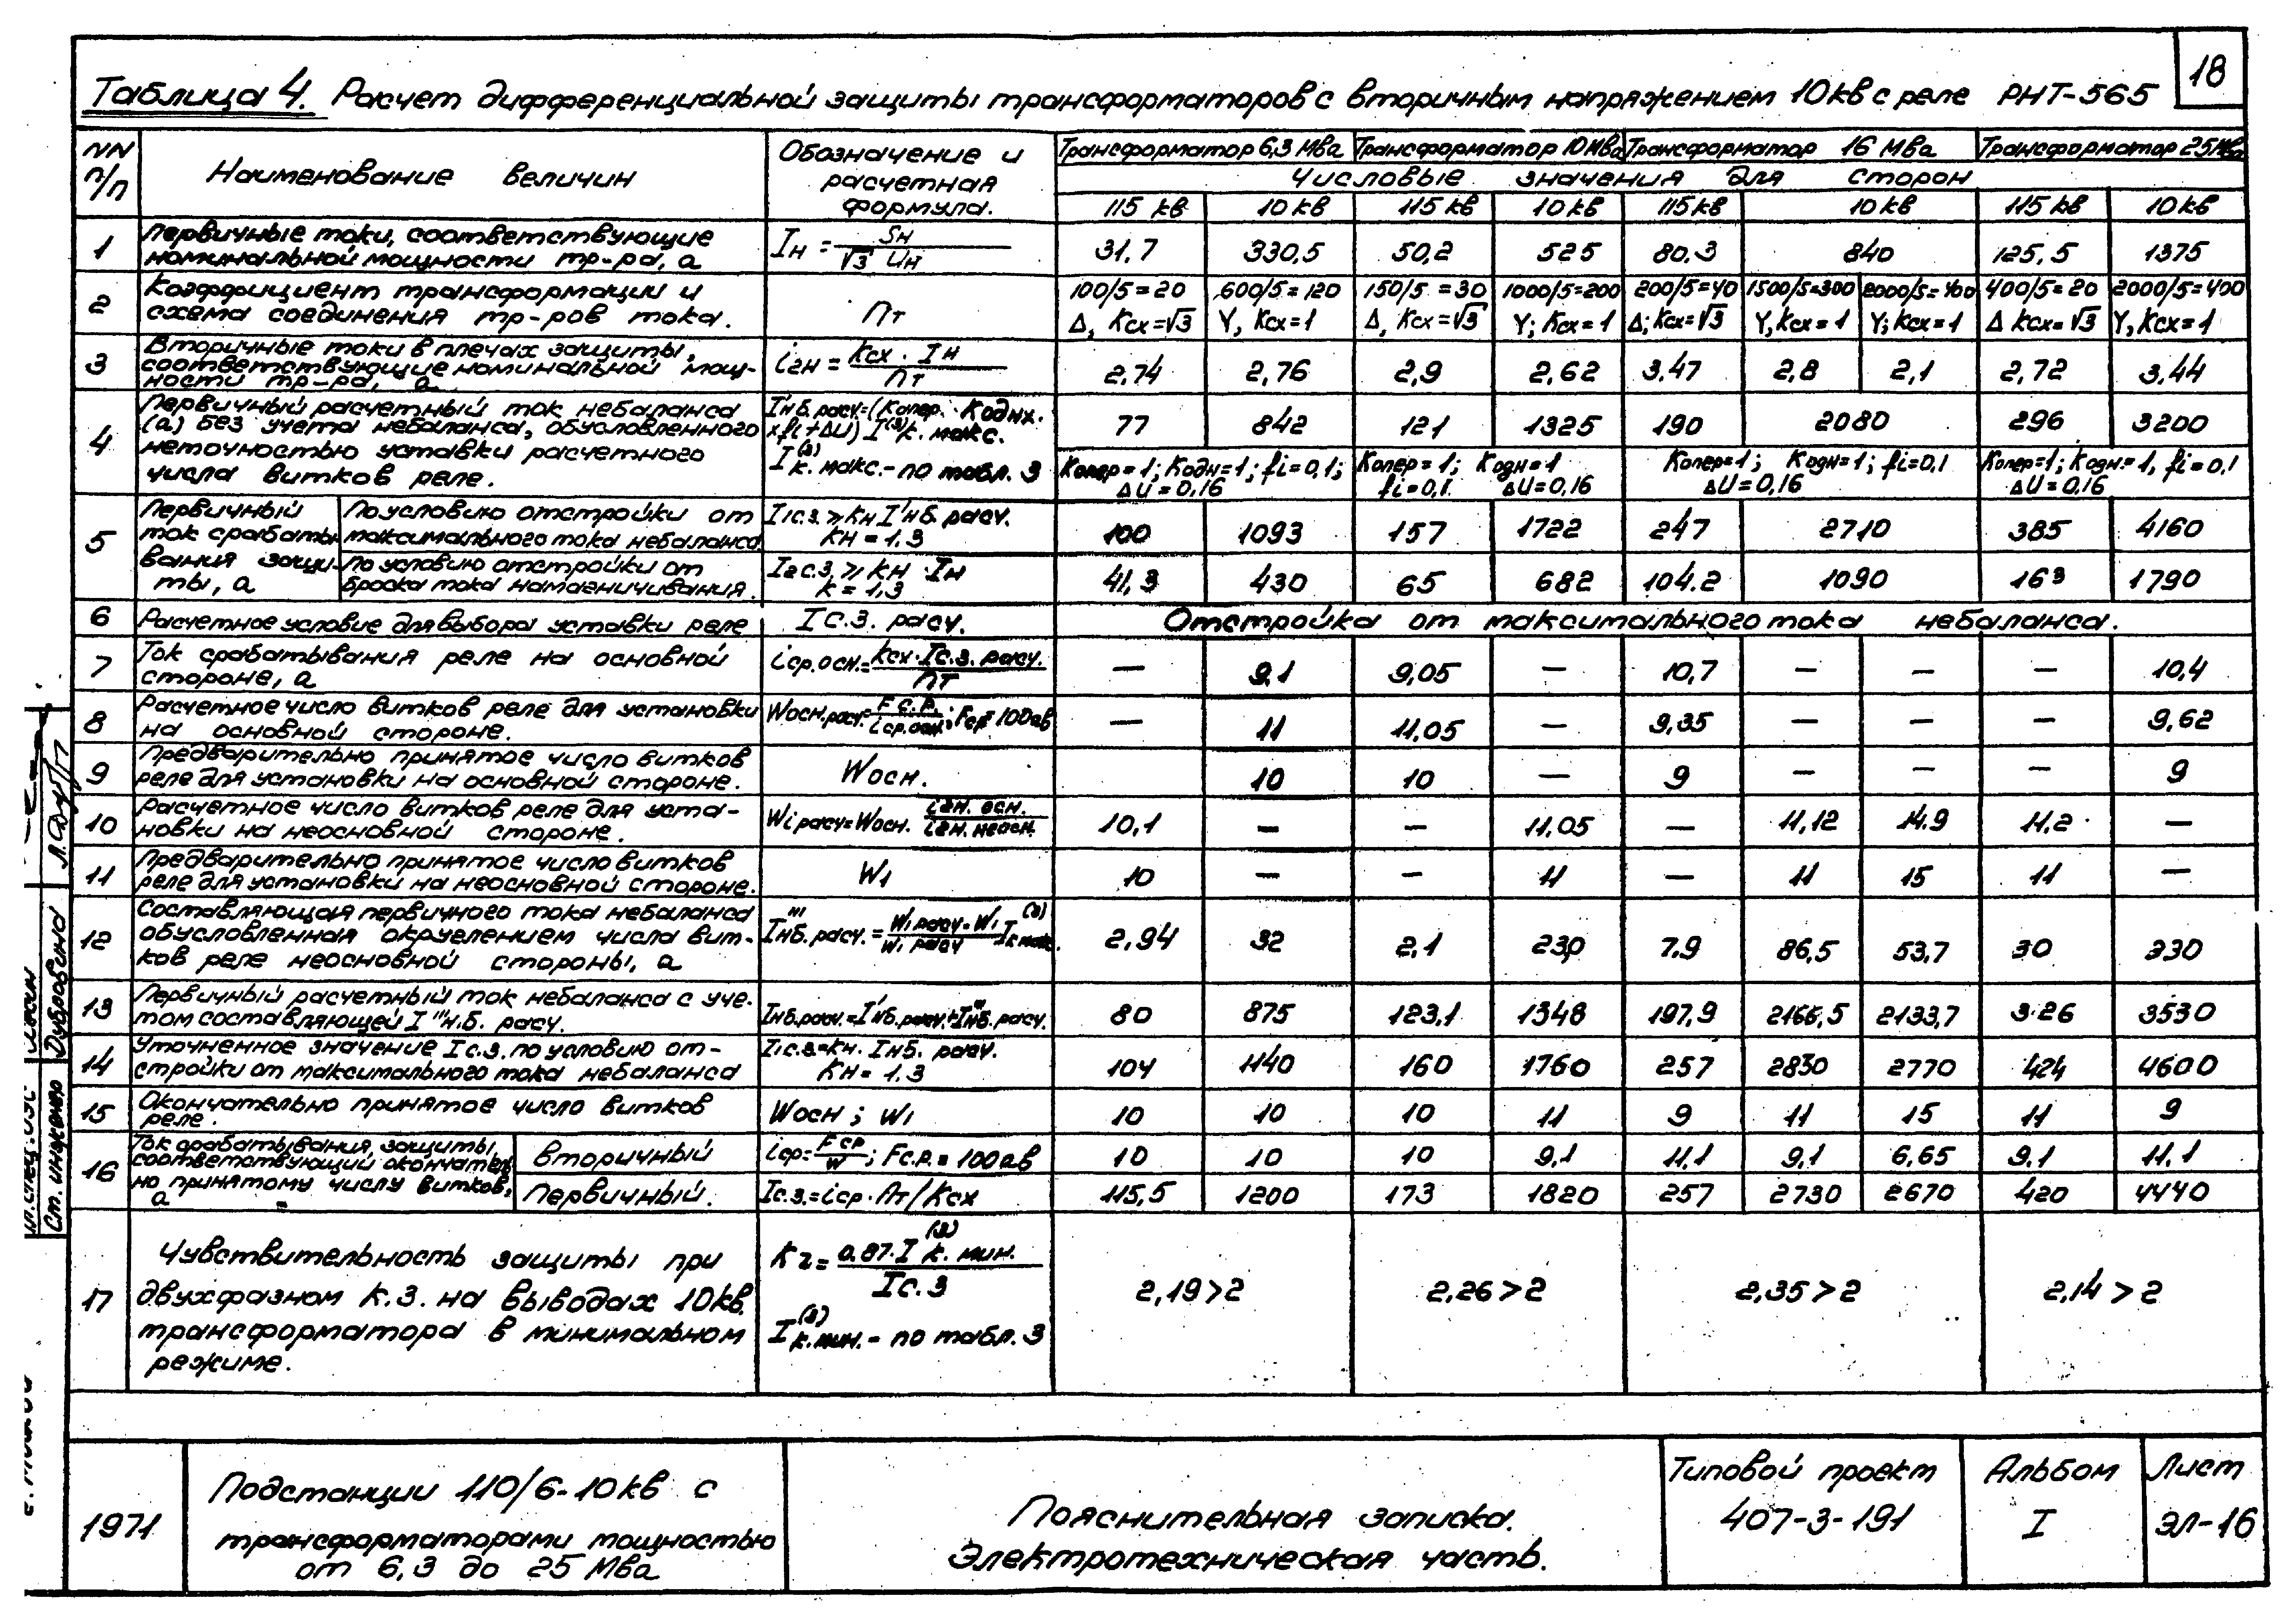 18
Таблица 4. Расчет дифференциальной защиты трансформаторов с вторичным напряжением 10 кв с реле РНТ-565
NN п/п
Наименование величин
Обозначение и расчетная формула.
Трансформатор 6,3 Мва Трансформатор 10 Мва Трансформатор 16 Мва Трансформатор 25 Мва
Числовые значения для сторон
115 кв 10 кв 115 кв 10 кв 115 кв 10 кв 115 кв 10 кв
1 Первичные токи, соответствующие номинальной мощности тр-ра, а Iн = Sн / √3 Uн 31,7 330,5 50,2 525 80,3 840 125,5 1375
2 Коэффициент трансформации и схема соединения тр-ров тока. Пт
100/5=20 600/5=120 150/5=30 1000/5=200 200/5=40 1500/5=300 2000/5=400 400/5=20 2000/5=400
Δ, Ксх=√3 Y, Ксх=1 Δ, Ксх=√3 Y; Ксх=1 Δ; Ксх=√3 Y, Ксх=1 Y; Ксх=1 Δ Ксх=√3 Y, Ксх=1
3 Вторичные токи в плечах защиты, соответствующие номинальной мощности тр-ра, а i2н = Ксх · Iн / Пт 2,74 2,76 2,9 2,62 3,47 2,8 2,1 2,72 3,44
4 Первичный расчетный ток небаланса (а) без учета небаланса, обусловленного неточностью уставки расчетного числа витков реле.
I'нб.расч=(Копер. Кодн х. х fi + ΔU) I(3)к. макс.
I(3)к. макс. - по табл. 3
77 842 121 1325 190 2080 296 3200
Копер=1; Кодн=1; fi=0,1; ΔU=0,16 Копер=1; Кодн=1 fi=0,1 ΔU=0,16 Копер=1; Кодн=1; fi=0,1 ΔU=0,16 Копер=1; Кодн.=1, fi=0,1 ΔU=0,16
5 Первичный ток срабатывания защиты, а
По условию отстройки от максимального тока небаланса I1с.з. ≥ Кн I'нб. расч. Кн = 1.3 100 1093 157 1722 247 2710 385 4160
По условию отстройки от броска тока намагничивания. I2с.з. ≥ Кн · Iн К = 1,3 41,3 430 65 682 104.2 1090 163 1790
6 Расчетное условие для выбора уставки реле Iс.з. расч. Отстройка от максимального тока небаланса.
7 Ток срабатывания реле на основной стороне, а iср.осн.= Ксх · Iс.з. расч. / Пт — 9,1 9,05 — 10,7 — — — 10,4
8 Расчетное число витков реле для установки на основной стороне. Wосн.расч.= Fс.р. / iср.осн. ; Fср=100ав — 11 11,05 — 9,35 — — — 9,62
9 Предварительно принятое число витков реле для установки на основной стороне. Wосн. 10 10 — 9 — — — 9
10 Расчетное число витков реле для установки на неосновной стороне. W1 расч=Wосн. i2н. осн. / i2н. неосн. 10,1 — — 11,05 — 11,12 14.9 11,2 —
11 Предварительно принятое число витков реле для установки на неосновной стороне. W1 10 — — 11 — 11 15 11 —
12 Составляющая первичного тока небаланса обусловленная округлением числа витков реле неосновной стороны, а I'''нб. расч. = W1 расч - W1 / W1 расч I(3)к макс. 2,94 32 2,1 230 7,9 86,5 53,7 30 330
13 Первичный расчетный ток небаланса с учетом составляющей I'''н.б. расч. Iнб.расч.=I'нб.расч.+I'''нб. расч. 80 875 123,1 1348 197,9 2166,5 2133,7 326 3530
14 Уточненное значение Iс.з. по условию отстройки от максимального тока небаланса I1с.з.=Кн. Iнб. расч. Кн = 1.3 104 1140 160 1760 257 2830 2770 424 4600
15 Окончательно принятое число витков реле. Wосн ; W1 10 10 10 11 9 11 15 11 9
16 Ток срабатывания, защиты, соответствующий окончательно принятому числу витков, а
Вторичный iср= Fср / W ; Fс.р. = 100ав 10 10 10 9,1 11,1 9,1 6,65 9,1 11,1
Первичный. Iс.з.=iср·Пт/Ксх 115,5 1200 173 1820 257 2730 2670 420 4440
17 Чувствительность защиты при двухфазном к.з. на выводах 10кв. трансформатора в минимальном режиме.
К2 = 0.87·I(3)к. мин. / Iс.з
I(3)к.мин. - по табл. 3
2,19 > 2 2,26 > 2 2,35 > 2 2,14 > 2
Ст. инженер Дубровина
1971
Подстанции 110/6-10кв с
трансформаторами мощностью
от 6,3 до 25 Мва
Пояснительная записка.
Электротехническая часть.
Типовой проект
407-3-191
Альбом
I
Лист
ЭЛ-16